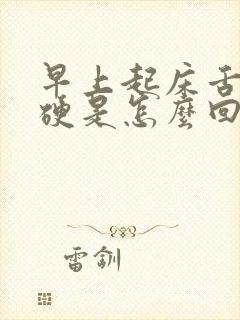 早上起床舌
硬是怎麼回
雷釧